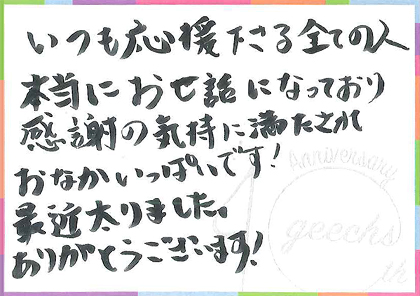 いつも応援下さる全ての人
本当にお世話になっており
感謝の気持に満たされ
おなかいっぱいです!
最近太りました。
ありがとうございます!
Anniversary
geechs
th